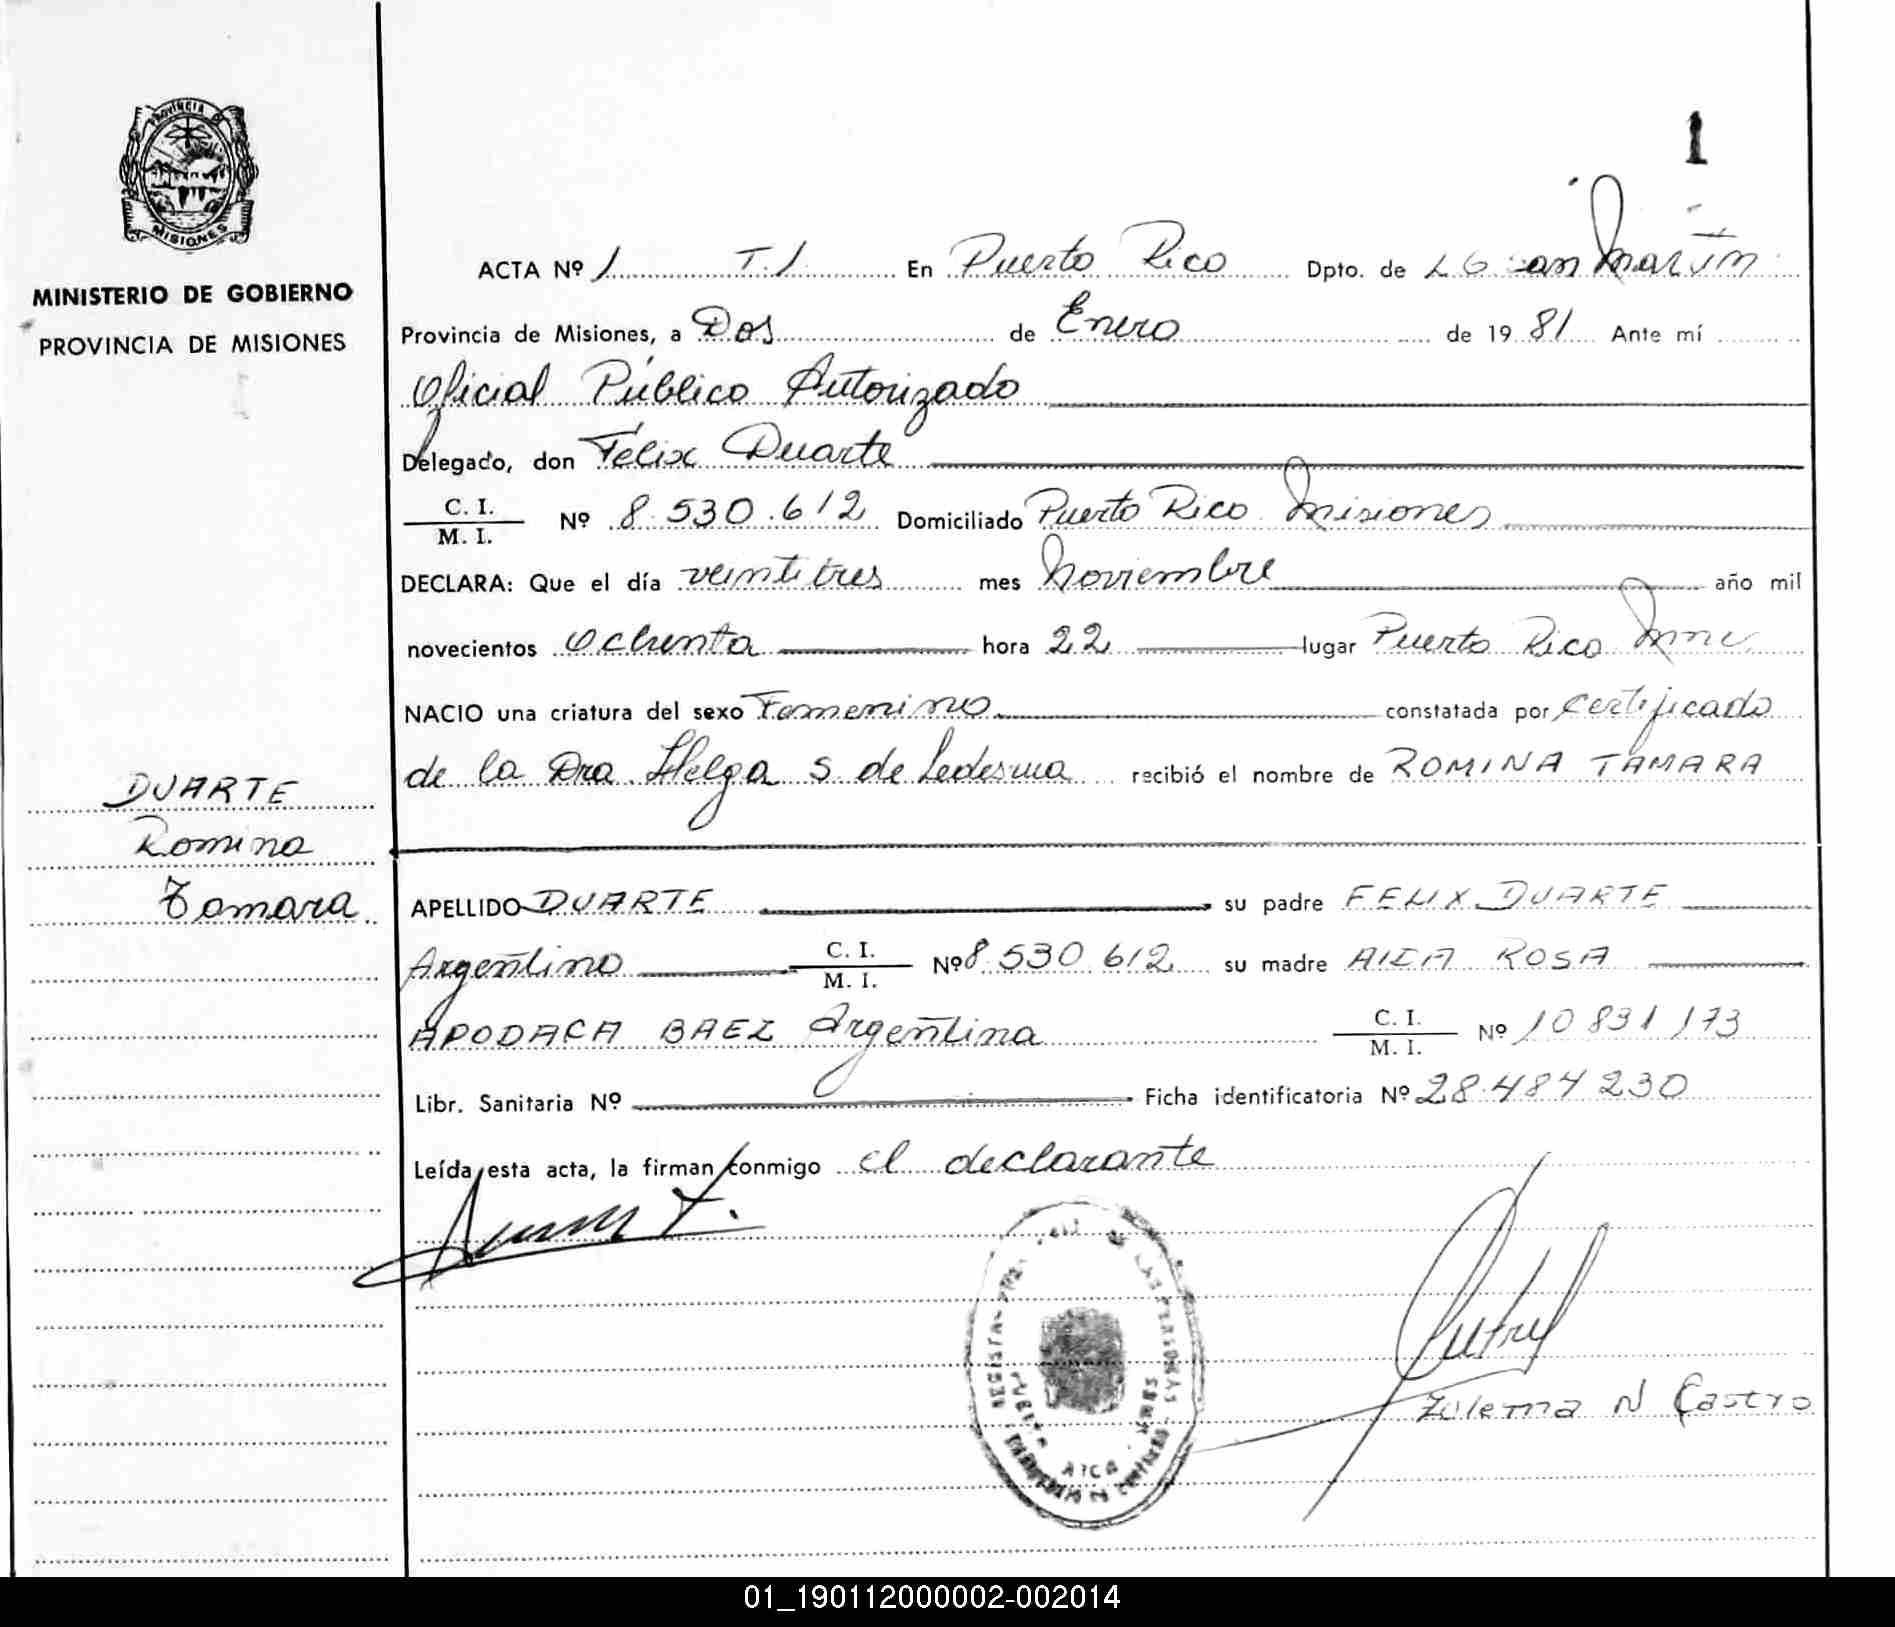 PROVINCIA DE
MISIONES
MINISTERIO DE GOBIERNO
PROVINCIA DE MISIONES
DUARTE
Romina
Tamara
1
ACTA Nº 1 T.1 En Puerto Rico Dpto. de L G San Martín
Provincia de Misiones, a Dos de Enero de 1981 Ante mí
Oficial Público Autorizado
Delegado, don Félix Duarte
C. I.
M. I. Nº 8.530.612 Domiciliado Puerto Rico Misiones
DECLARA: Que el día veintitres mes Noviembre año mil
novecientos Ochenta hora 22 lugar Puerto Rico
NACIO una criatura del sexo Femenino constatada por Certificado
de la Dra. Helga S de Ledesma recibió el nombre de ROMINA TAMARA
APELLIDO DUARTE su padre FELIX DUARTE
Argentino C. I.
M. I. Nº 8.530.612 su madre AIDA ROSA
APODACA BAEZ Argentina C. I.
M. I. Nº 10 831 173
Libr. Sanitaria Nº Ficha identificatoria Nº 28.484 230
Leída esta acta, la firman conmigo el declarante
Zulema N Castro
01_190112000002-002014